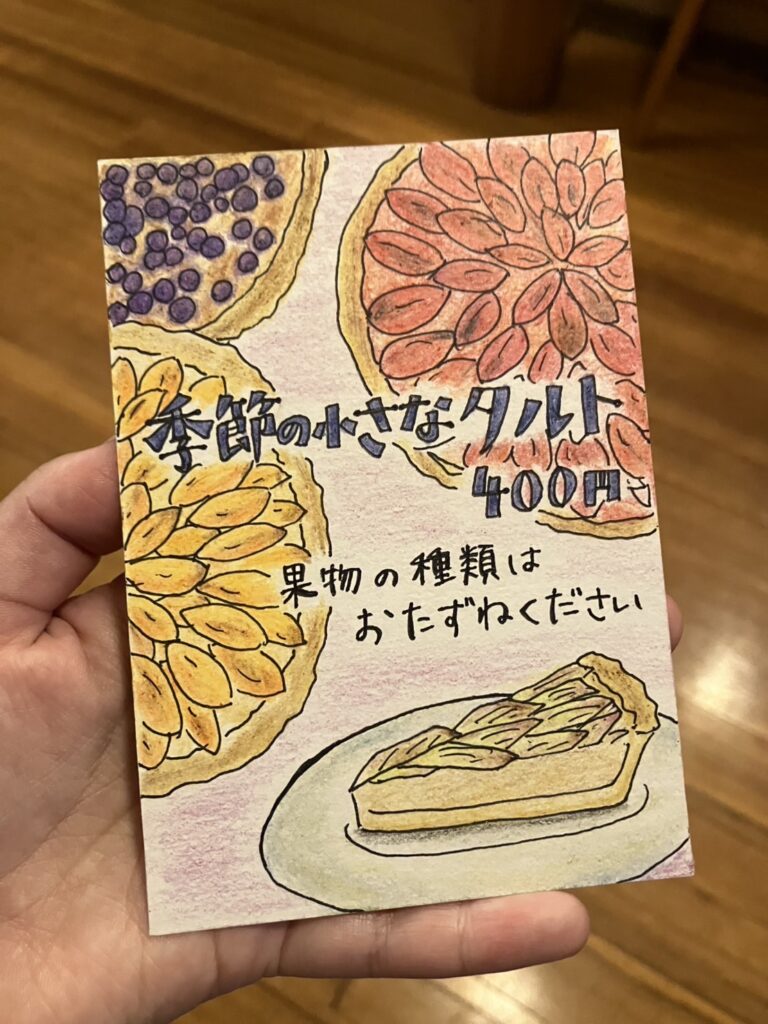 季節の小さなタルト
400円
果物の種類は
おたずねください